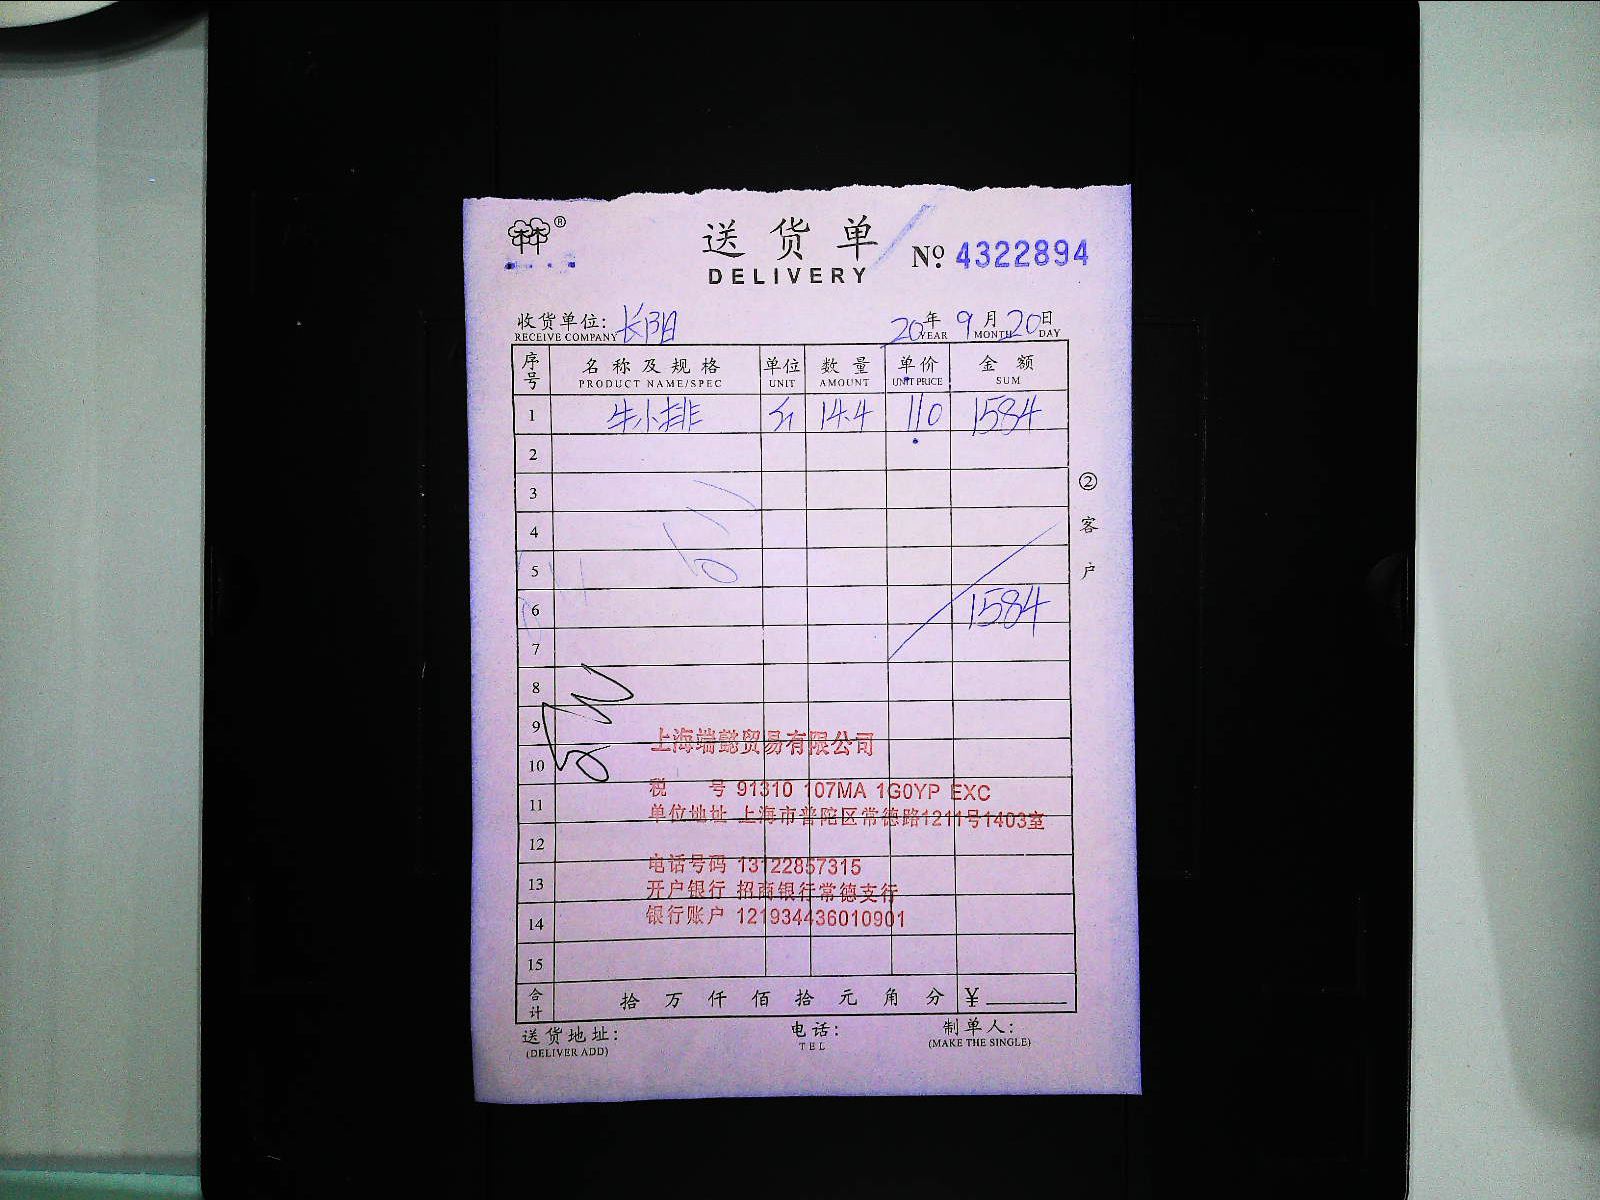 ®
送货单
DELIVERY
Nº. 4322894
收货单位: 长阳 20年 9月 20日
RECEIVE COMPANY YEAR MONTH DAY
序号 名称及规格 单位 数量 单价 金额
PRODUCT NAME/SPEC UNIT AMOUNT UNIT PRICE SUM
1 牛小排 斤 14.4 110 1584
2
3
4
5
6 1584
7
8
9
10
11
12
13
14
15
②客户
上海端懿贸易有限公司
税 号 91310 107MA 1G0YP EXC
单位地址 上海市普陀区常德路1211号1403室
电话号码 13122857315
开户银行 招商银行常德支行
银行账户 121934436010901
合计 拾 万 仟 佰 拾 元 角 分 ¥
送货地址: 电话: 制单人:
(DELIVER ADD) TEL (MAKE THE SINGLE)